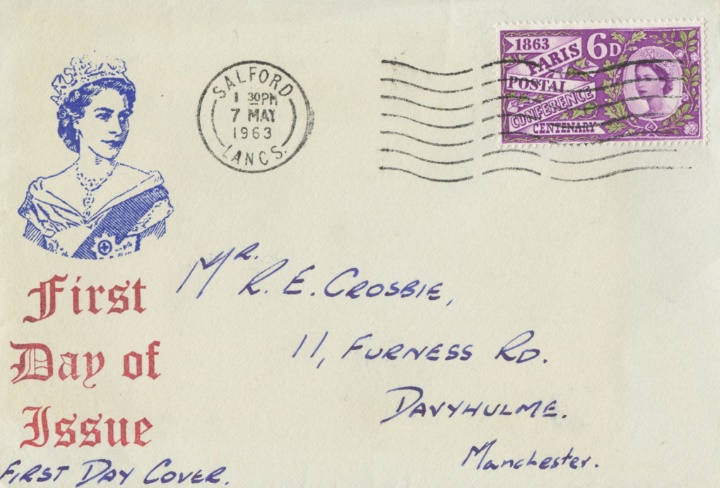 1863
PARIS 6D
POSTAL
CONFERENCE
CENTENARY
SALFORD
1 30PM
7 MAY
1963
LANCS.
Mr.
R. E. CROSBIE,
11, FURNESS RD.
DAVYHULME.
Manchester.
First
Day of
Issue
FIRST DAY COVER.